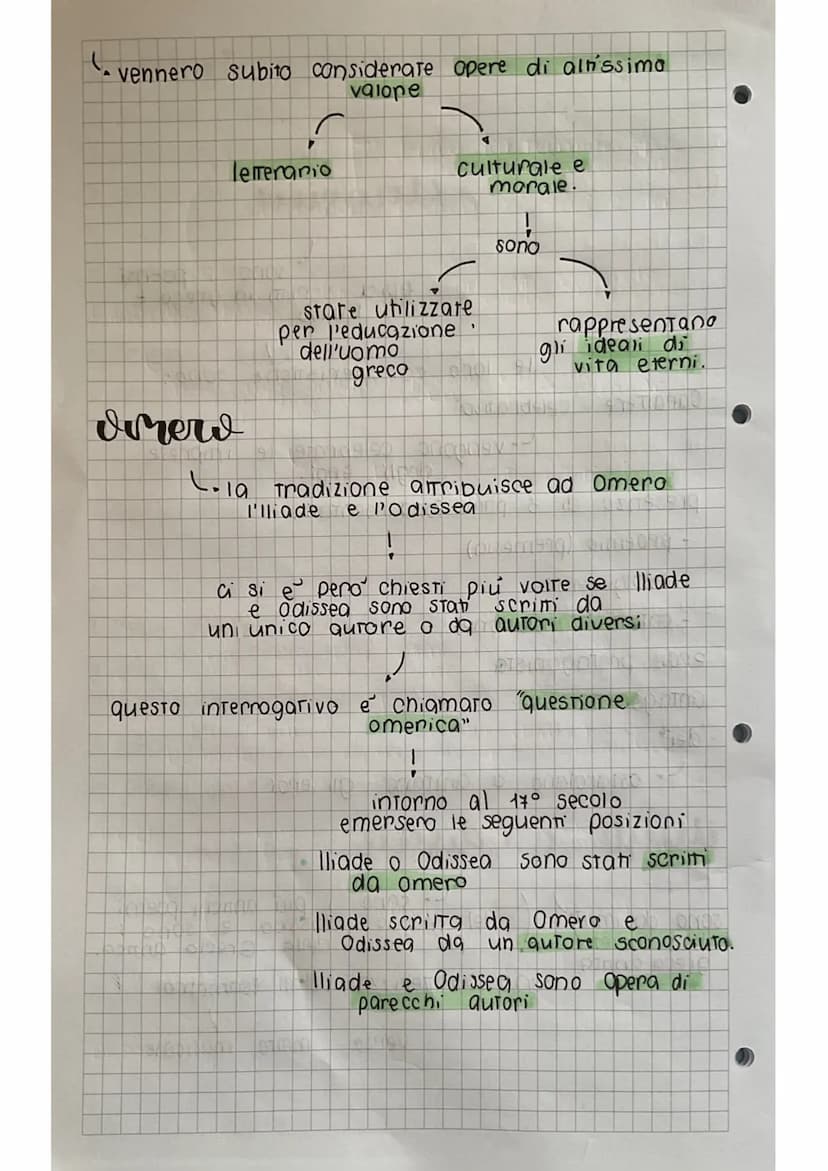 vennero subito considerate opere di altissimo
valore
letterario
culturale e
morale.
sono
state utilizzate
per l'educazione
dell'uomo
greco
rappresentano
gli ideali di
vita eterni.
Omero
la tradizione attribuisce ad Omero
l'Iliade e l'Odissea
ci si è però chiesti più volte se Iliade
e Odissea sono stati scritti da
un unico autore o da autori diversi
questo interrogativo è chiamato "questione
omerica"
intorno al 17° secolo
emersero le seguenti posizioni
• Iliade o Odissea sono stati scritti
da Omero
• Iliade scritta da Omero e
Odissea da un autore sconosciuto.
• Iliade e Odissea sono opera di
parecchi autori